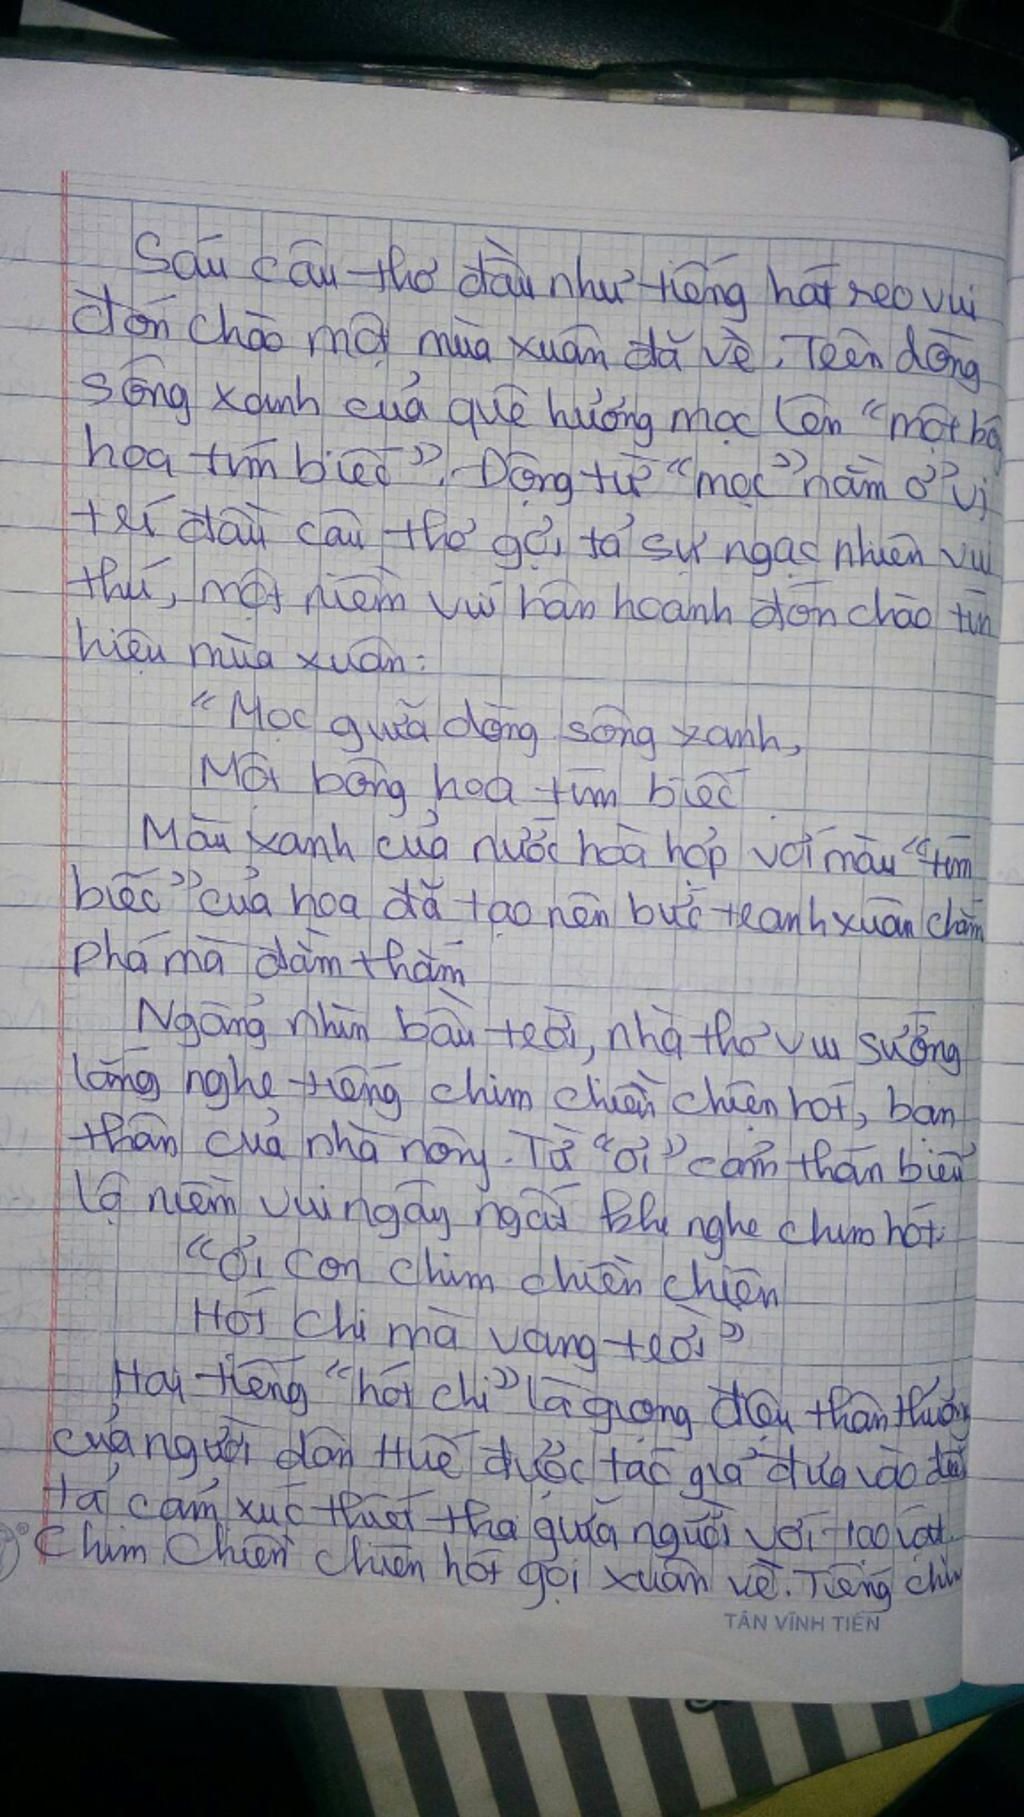 Sáu câu thơ đầu như tiếng hát reo vui
đón chào một mùa xuân đã về. Trên dòng
sông xanh của quê hương mọc lên "một bô
hoa tím biếc". Động từ "mọc" nằm ở vị
trí đầu câu thơ gợi tả sự ngạc nhiên vui
thú, một niềm vui hân hoanh đón chào tín
hiệu mùa xuân:
"Mọc giữa dòng sông xanh,
Một bông hoa tím biếc
Màu xanh của nước hoà hợp với màu "tím
biếc" của hoa đã tạo nên bức tranh xuân chấm
phá mà đằm thắm
Ngẩng nhìn bầu trời, nhà thơ vui sướng
lắng nghe tiếng chim chiền chiện hót, bạn
thân của nhà nông. Từ "ơi" cảm thán biểu
lộ niềm vui ngây ngất khi nghe chim hót:
"Ơi con chim chiền chiện
Hót chi mà vang trời"
Hai tiếng "hót chi" là giọng điệu thân thương
của người dân Huế được tác giả đưa vào để
tả cảm xúc thiết tha giữa người với tạo vật.
Chim chiền chiện hót gọi xuân về. Tiếng chim
TÂN VĨNH TIẾN